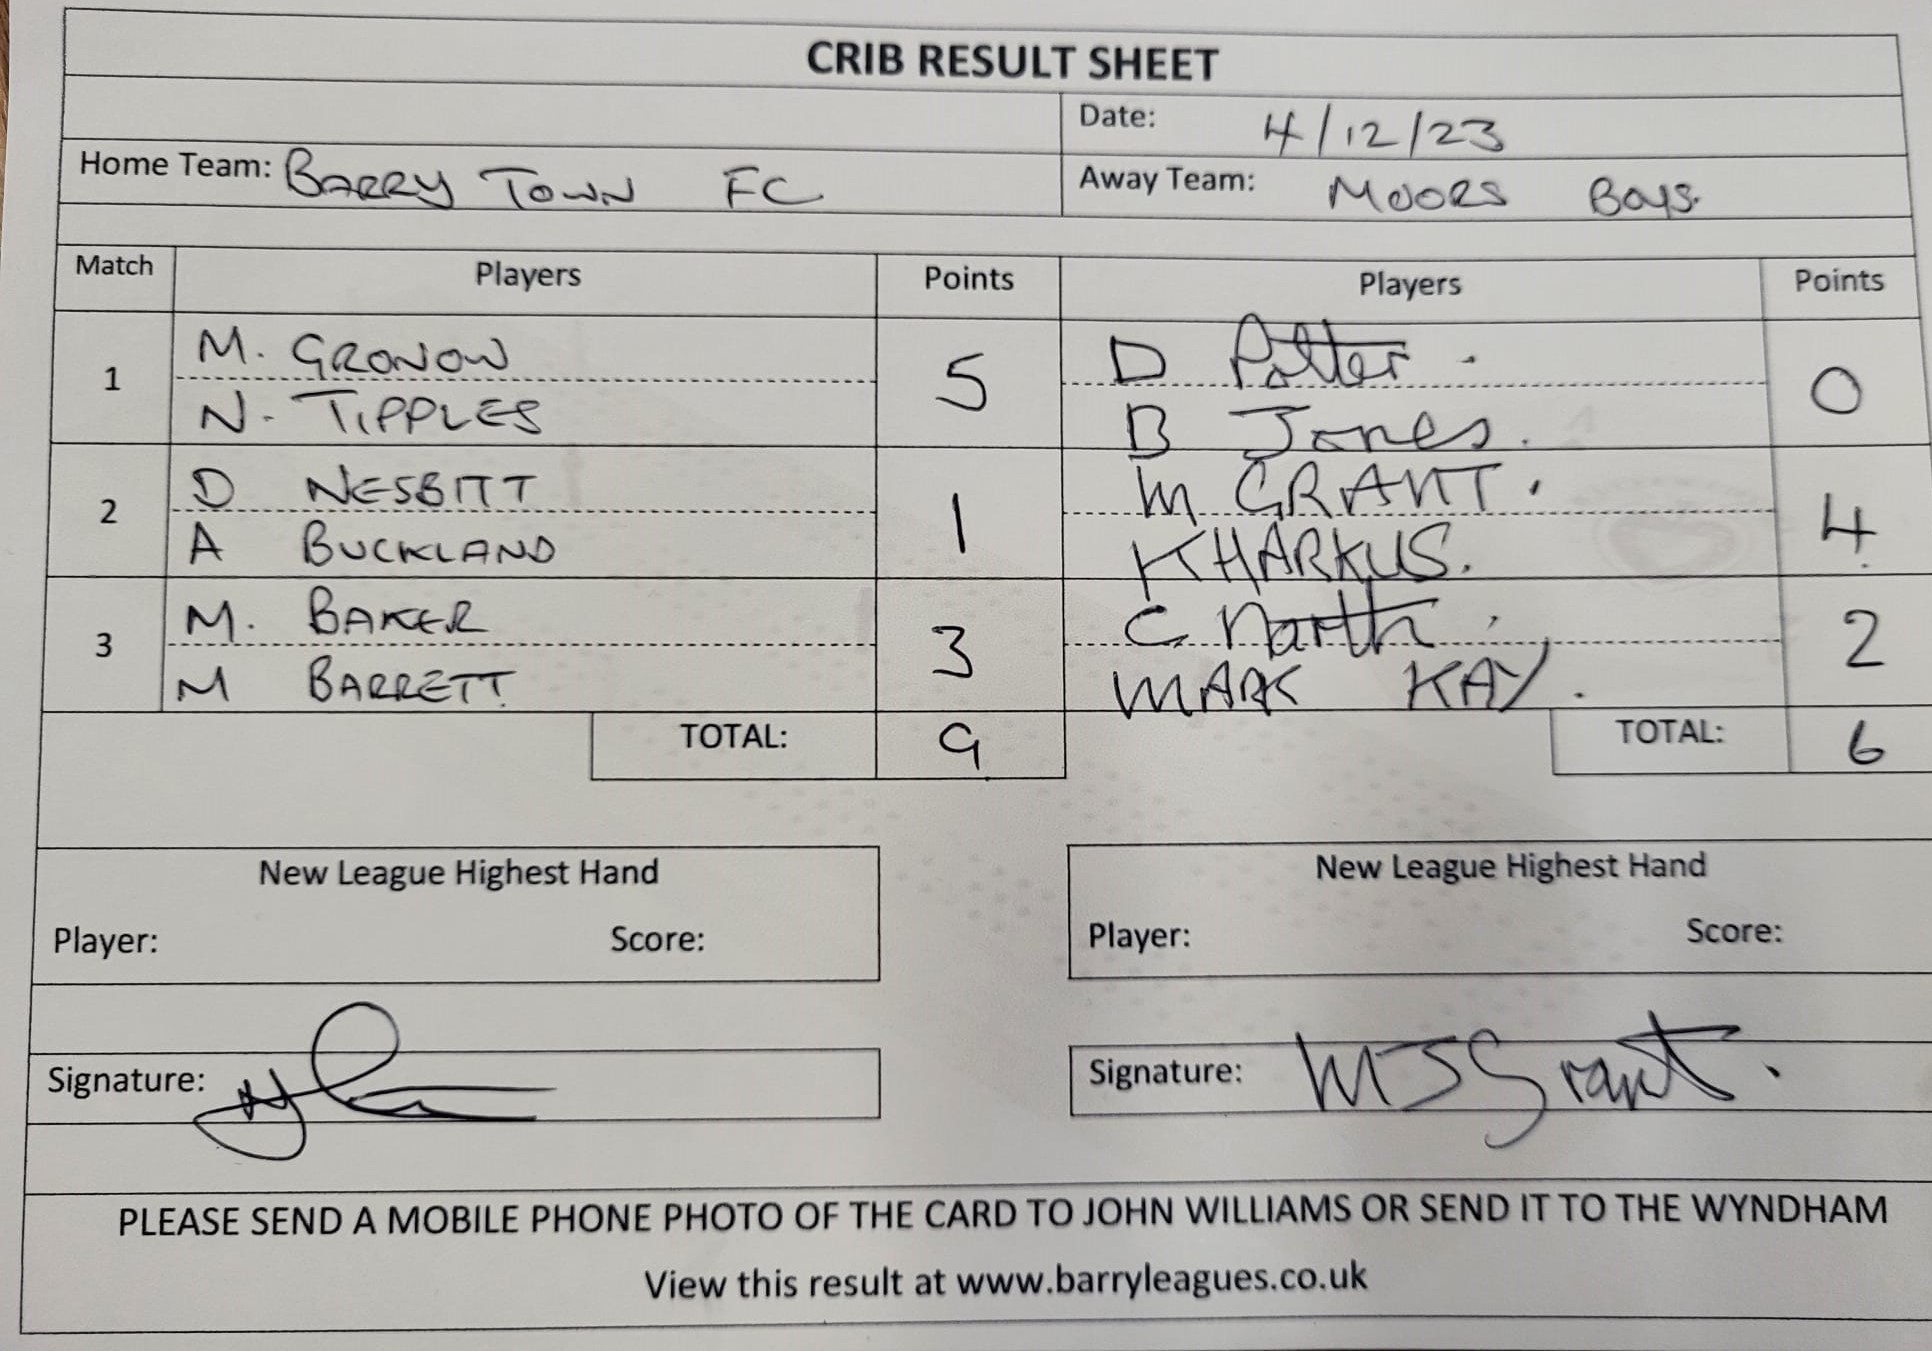 CRIB RESULT SHEET
Date: 4/12/23
Home Team: BARRY TOWN FC
Away Team: MOORS BOYS.
Match Players Points Players Points
1
M. GRONOW
N. TIPPLES
5
D Potter.
B Jones.
0
2
D NESBITT
A BUCKLAND
1
M GRANT.
K HARKUS.
4
3
M. BAKER
M BARRETT.
3
C North.
MARK KAY.
2
TOTAL: 9
TOTAL: 6
New League Highest Hand
Player: Score:
New League Highest Hand
Player: Score:
Signature:
Signature: MJGrant.
PLEASE SEND A MOBILE PHONE PHOTO OF THE CARD TO JOHN WILLIAMS OR SEND IT TO THE WYNDHAM
View this result at www.barryleagues.co.uk